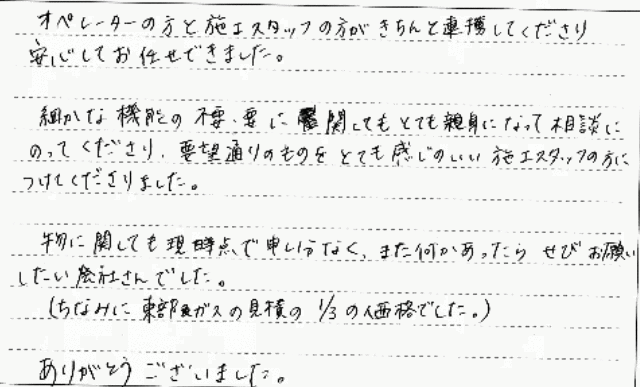 オペレーターの方と施工スタッフの方がきちんと連携してくださり
安心してお任せできました。
細かな機能の不要・要に関してもとても親身になって相談に
のってくださり、要望通りのものをとても感じのいい施工スタッフの方に
つけてくださりました。
物に関しても現時点で申し分なく、また何かあったらぜひお願い
したい会社さんでした。
(ちなみに東部ガスの見積の1/3の価格でした。)
ありがとうございました。